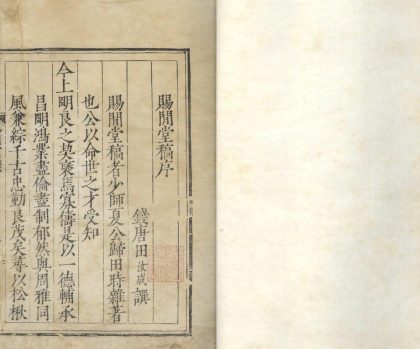 賜閒堂稿序
錢唐田汝成譔
賜閒堂稿者少師夏公歸田時雜著
也公以命世之才受知
今上明良之契裒焉寡儔是以一德輔承
昌明鴻業盡倫盡制郁然與周雅同
風兼綜千古忠勤良茂矣尋以松楸